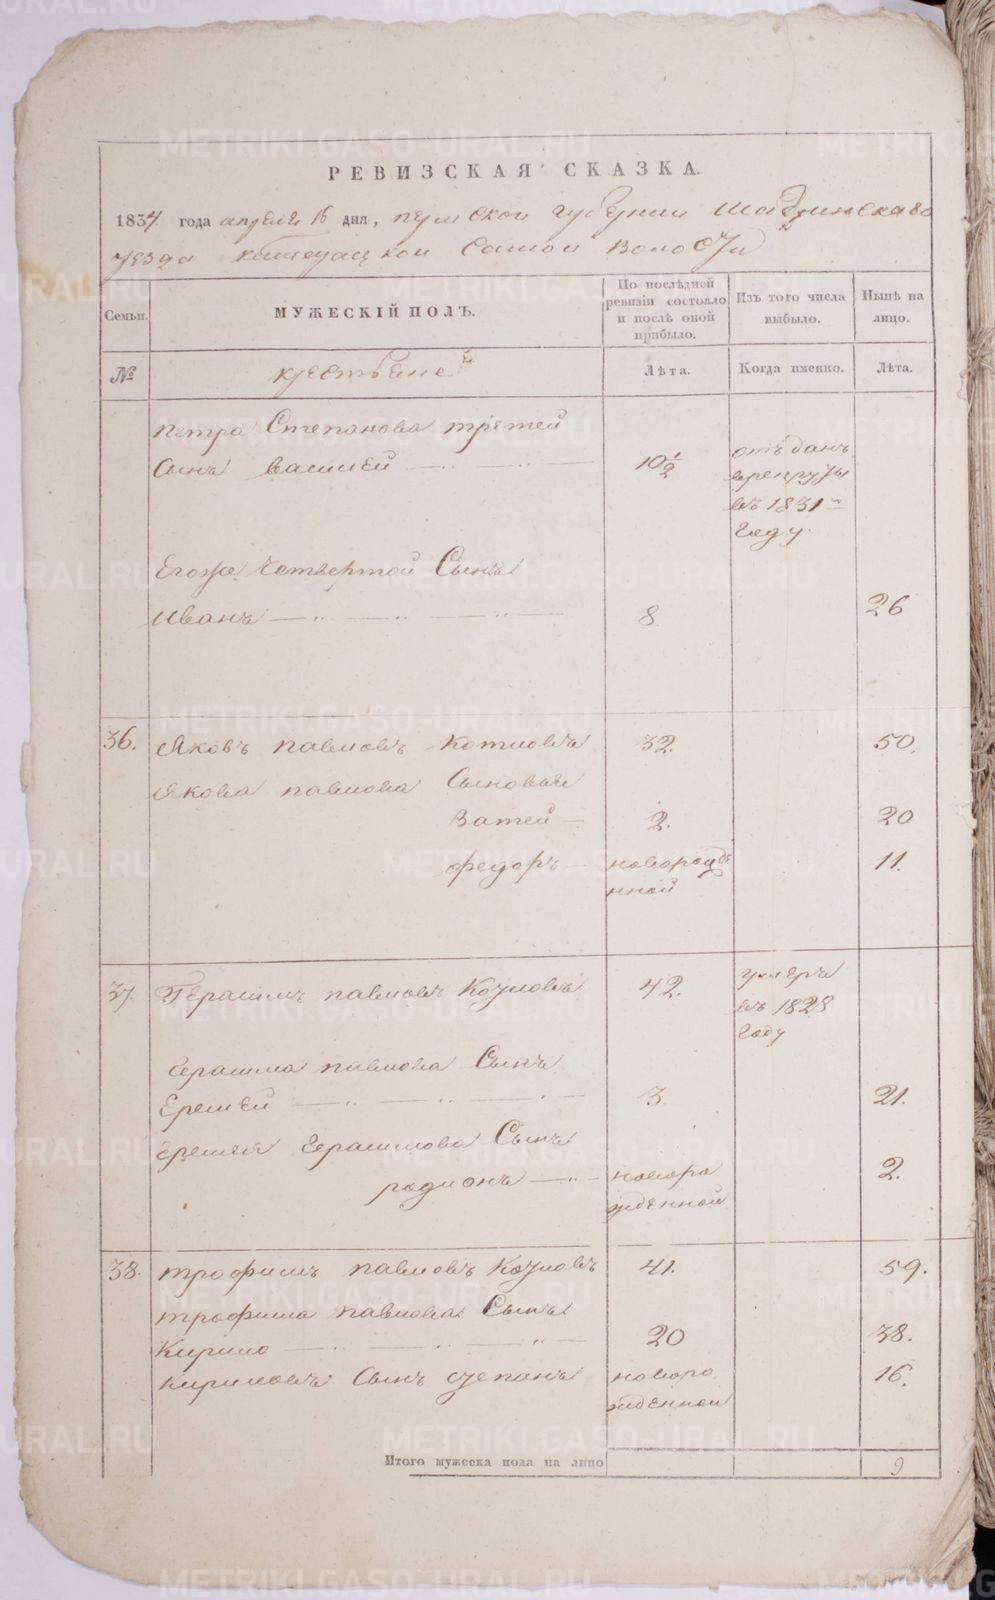 РЕВИЗСКАЯ СКАЗКА.
1834 года апреля 16 дня, пермской губернии Шадринскаго
уезда самой волости
Семьи.
МУЖЕСКІЙ ПОЛЪ.
По послѣдней ревизіи состояло и послѣ оной прибыло.
Изъ того числа выбыло.
Нынѣ на лицо.
№
крестьяне
Лѣта.
Когда именно.
Лѣта.
петра Степанова третей
Сынъ василей 10½ отъданъ
врекруты
въ 1831м
Году.
Егоже четвертой Сынъ
Иванъ 8 26
36. Яковъ павловъ 32. 50.
Якова павлова Сыновья
2. 20
федоръ новорожде
нной 11.
37. Герасимъ павловъ Козловъ 42. умеръ
въ 1828
Году
Герасима павлова Сынъ
Еремей 3 21.
Еремея Герасимова Сынъ
родионъ новоро
жденной 2.
38. трофимъ павловъ Козловъ 41. 59.
трофима павлова Сынъ
Кирило 20 38.
кириловъ Сынъ степанъ новоро
жденной 16.
Итого мужеска пола на лицо 9
METRIKI.GASO-URAL.RU